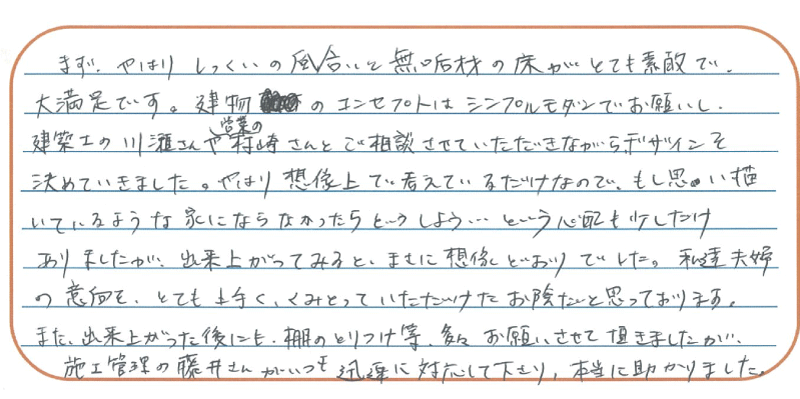 まず、やはりしっくいの風合いと無垢材の床がとても素敵で、
大満足です。建物のコンセプトはシンプルモダンでお願いし、
建築士の川瀬さんや営業の村崎さんとご相談させていただきながらデザインを
決めていきました。やはり想像上で考えているだけなので、もし思い描
いているような家にならなかったらどうしよう…という心配も少しだけ
ありましたが、出来上がってみると、まさに想像どおりでした。私達夫婦
の意向を、とても上手く、くみとっていただけたお陰だと思っております。
また、出来上がった後にも、棚のとりつけ等、多々お願いさせて頂きましたが、
施工管理の藤井さんがいつも迅速に対応して下さり、本当に助かりました。